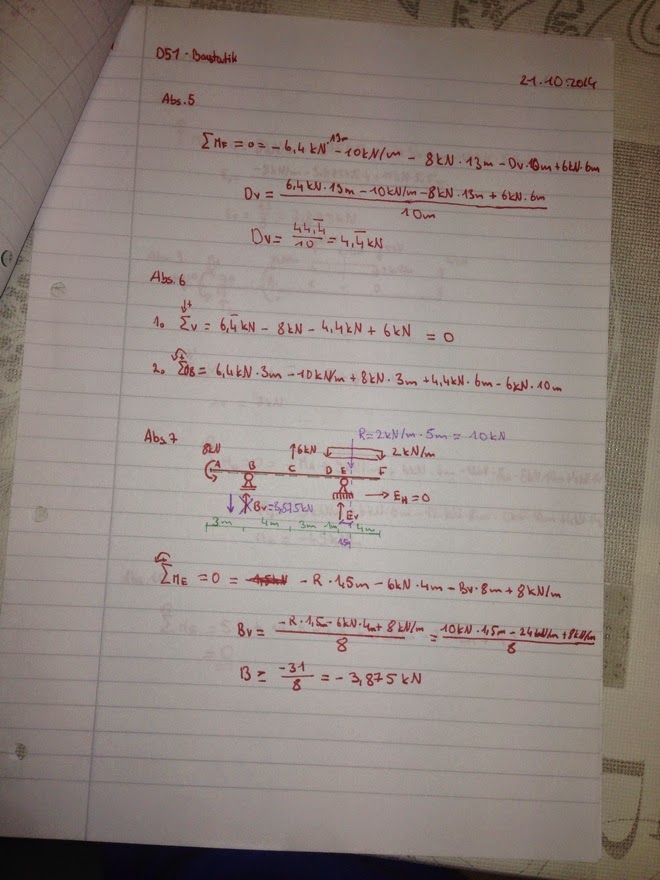 051 - Baustatik
21.10.2014
Abs. 5
ΣM_E = 0 = -6,4kN·13m - 10kN/m - 8kN·13m - Dv·10m + 6kN·6m
Dv = (6,4kN·13m - 10kN/m - 8kN·13m + 6kN·6m) / 10m
Dv = 44,4̅ / 10 = 4,4̅ kN
Abs. 6
1. Σv = 6,4̅kN - 8kN - 4,4kN + 6kN = 0
2. ΣB = 6,4kN·3m - 10kN/m + 8kN·3m + 4,4kN·6m - 6kN·10m
Abs. 7
R = 2kN/m · 5m = 10kN
8kN ↑6kN 2kN/m
A B C D E F
→ E_H = 0
Bv = 3,875kN Ev
3m 4m 3m 1m 4m
ΣM_E = 0 = - R·1,5m - 6kN·4m - Bv·8m + 8kN/m
Bv = (-R·1,5m - 6kN·4m + 8kN/m) / 8 = (10kN·1,5m - 24kN/m + 8kN/m) / 8
B = -31 / 8 = -3,875kN